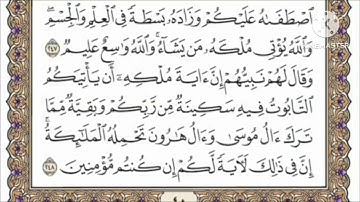 ٱصۡطَفَىٰهُ عَلَيۡكُمۡ وَزَادَهُۥ بَسۡطَةٗ فِي ٱلۡعِلۡمِ وَٱلۡجِسۡمِۖ
وَٱللَّهُ يُؤۡتِي مُلۡكَهُۥ مَن يَشَآءُۚ وَٱللَّهُ وَٰسِعٌ عَلِيمٞ ٢٤٧
وَقَالَ لَهُمۡ نَبِيُّهُمۡ إِنَّ ءَايَةَ مُلۡكِهِۦٓ أَن يَأۡتِيَكُمُ
ٱلتَّابُوتُ فِيهِ سَكِينَةٞ مِّن رَّبِّكُمۡ وَبَقِيَّةٞ مِّمَّا
تَرَكَ ءَالُ مُوسَىٰ وَءَالُ هَٰرُونَ تَحۡمِلُهُ ٱلۡمَلَٰٓئِكَةُۚ
إِنَّ فِي ذَٰلِكَ لَأٓيَةٗ لَّكُمۡ إِن كُنتُم مُّؤۡمِنِينَ ٢٤٨